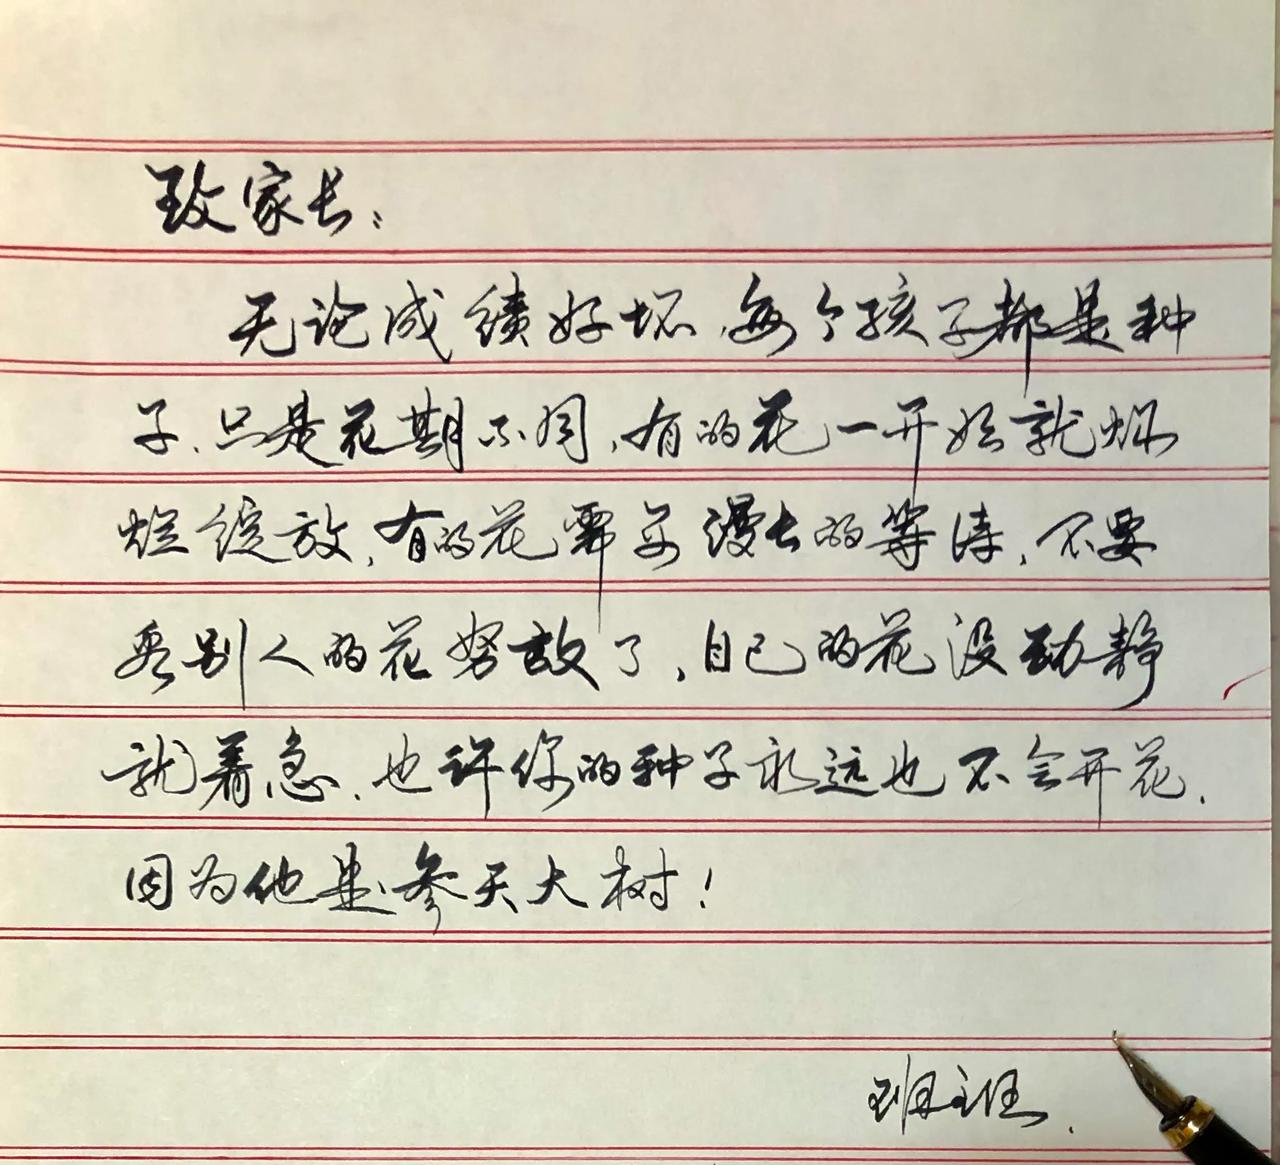 致家长:
无论成绩好坏,每个孩子都是种
子,只是花期不同,有的花一开始就灿
烂绽放,有的花需要漫长的等待,不要
看别人的花努放了,自己的花没动静
就着急,也许你的种子永远也不会开花,
因为他是参天大树!
班主任.